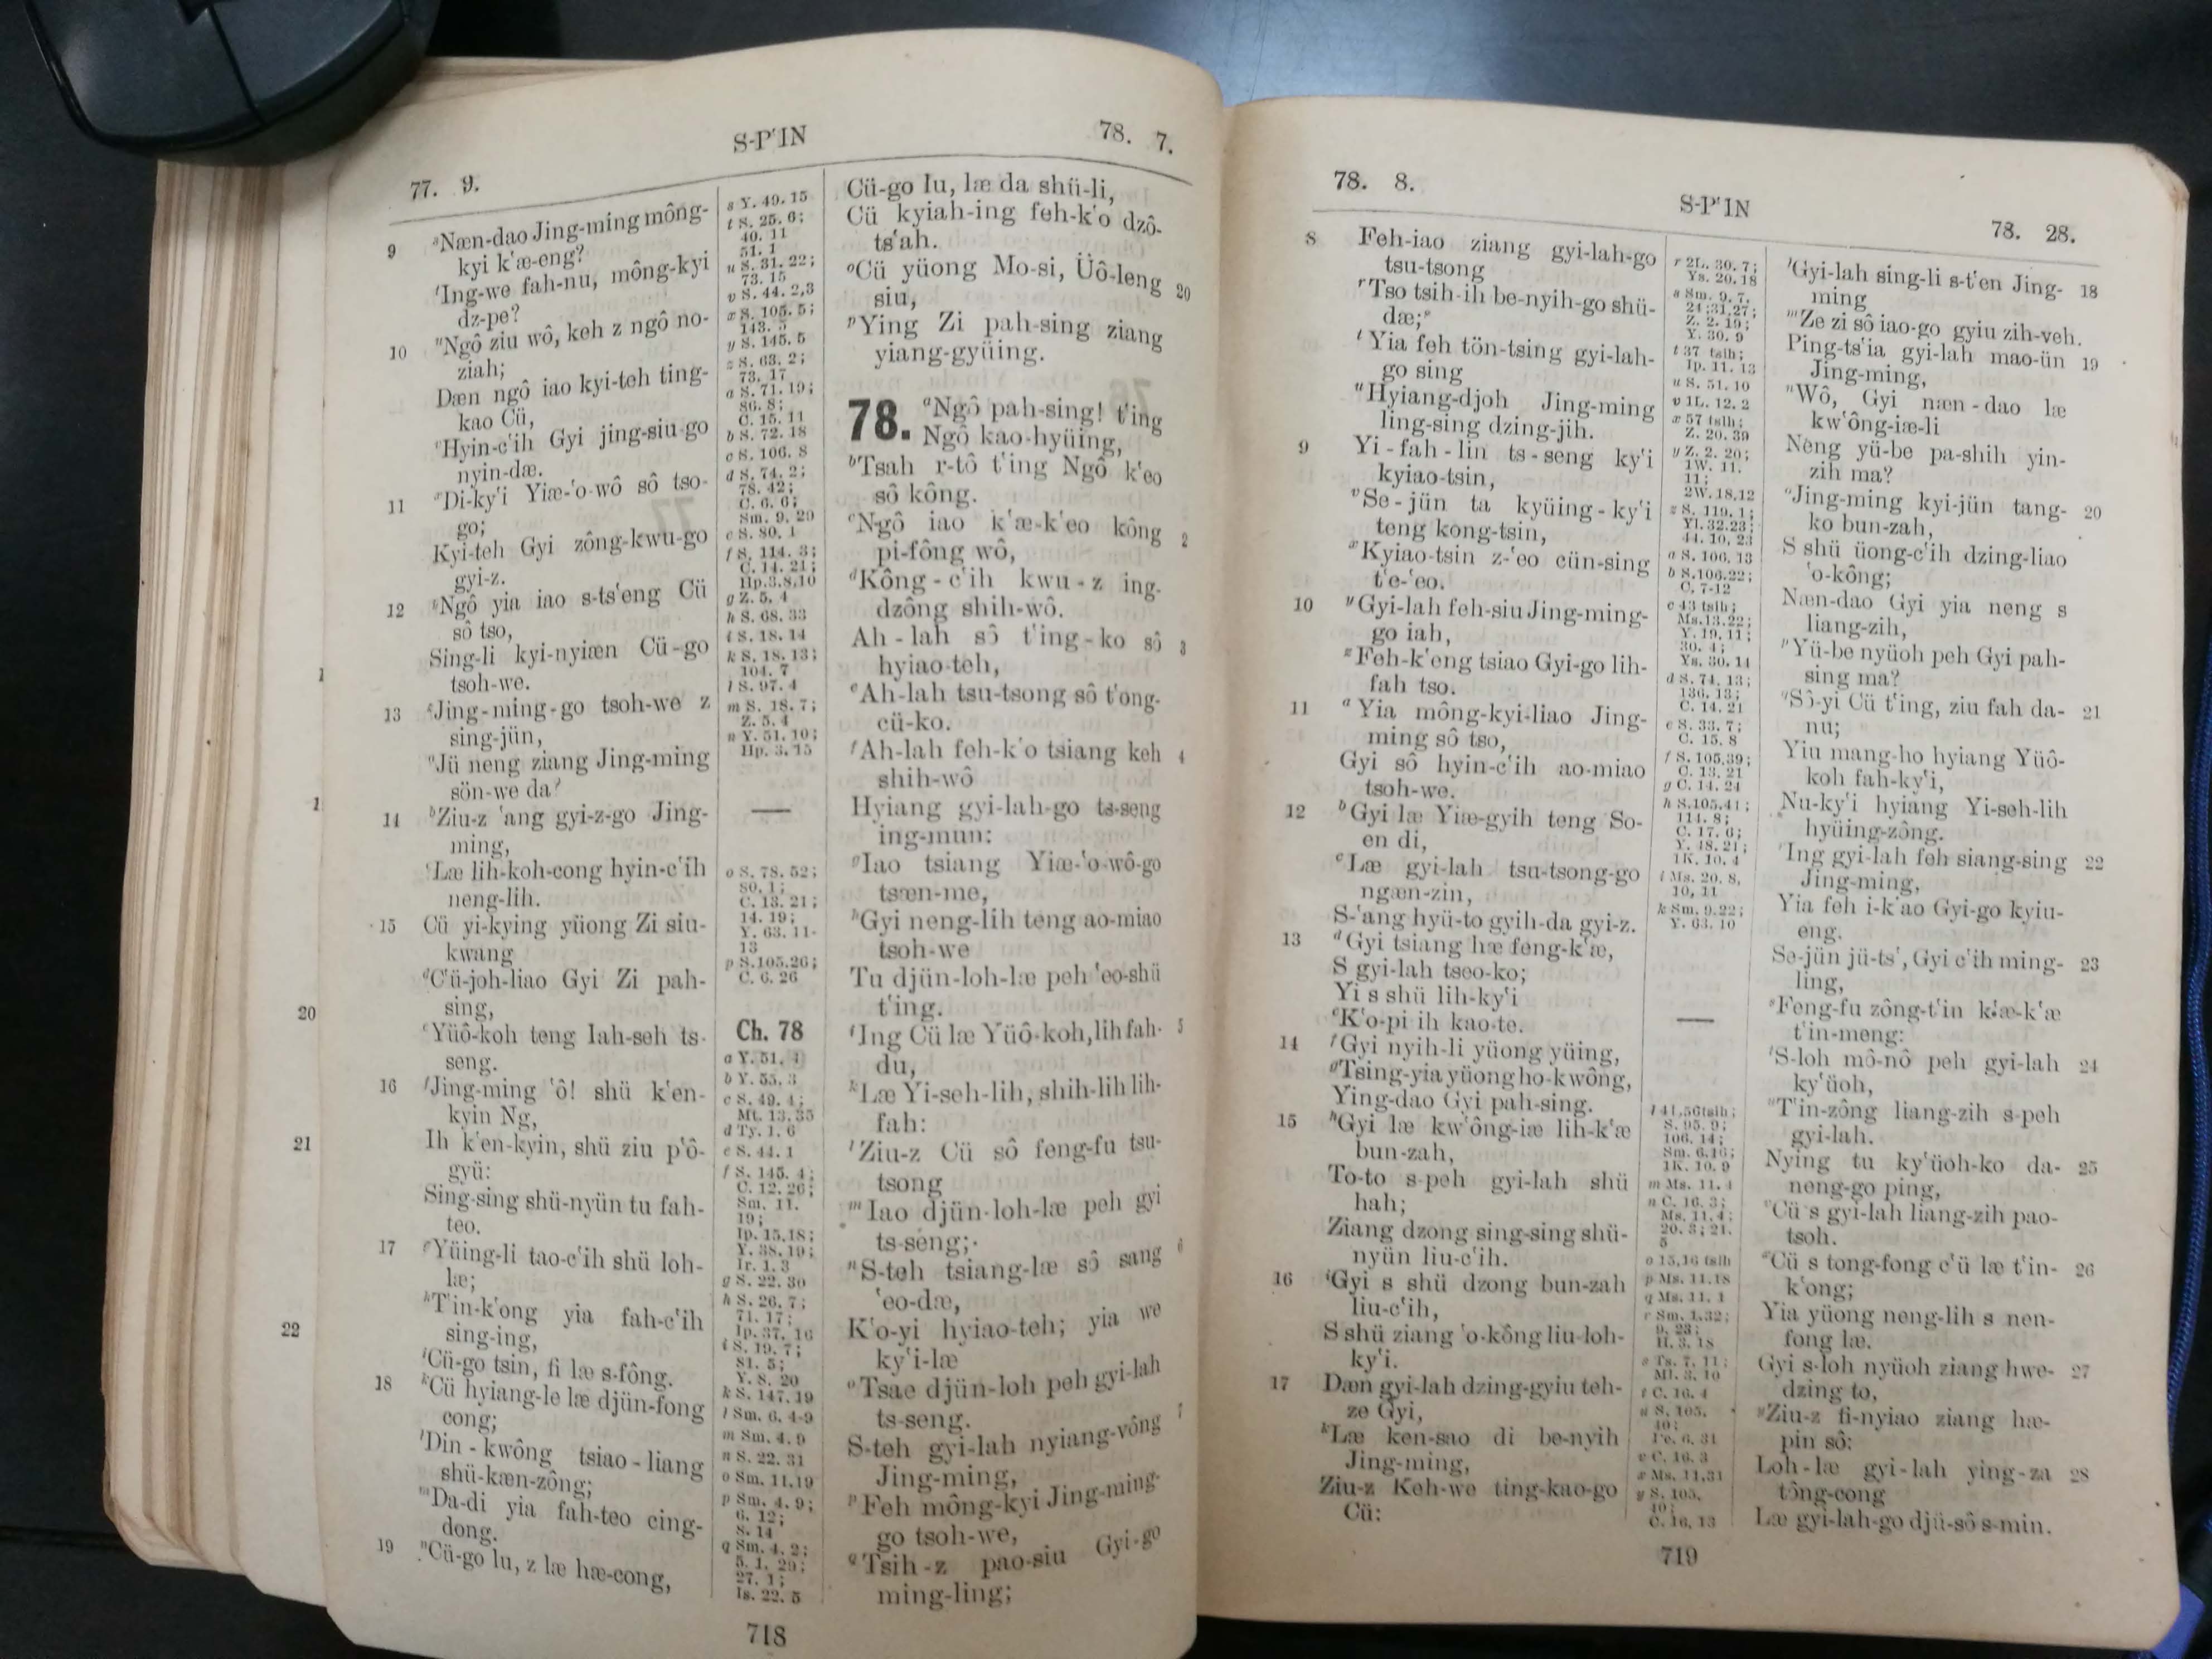 S-P'IN
77. 9.
78. 7.
9 ˢNæn-dao Jing-ming mông-
kyi k'æ-eng?
ᵗIng-we fah-nu, mông-kyi
dz-pe?
10 ᵘNgô ziu wô, keh z ngô no-
ziah;
Dæn ngô iao kyi-teh ting-
kao Cü,
ᵛHyin-c'ih Gyi jing-siu-go
nyin-dæ.
11 ˣDi-ky'i Yiæ-'o-wô sô tso-
go;
Kyi-teh Gyi zông-kwu-go
gyi-z.
12 ʸNgô yia iao s-ts'eng Cü
sô tso,
Sing-li kyi-nyiæn Cü-go
tsoh-we.
13 ᶻJing-ming-go tsoh-we z
sing-jün,
ᵃJü neng ziang Jing-ming
sön-we da?
14 ᵇZiu-z 'ang gyi-z-go Jing-
ming,
ᶜLæ lih-koh-cong hyin-c'ih
neng-lih.
15 Cü yi-kying yüong Zi siu-
kwang
ᵈC'ü-joh-liao Gyi Zi pah-
sing,
ᵉYüô-koh teng Iah-seh ts-
seng.
16 ᶠJing-ming 'ô! shü k'en-
kyin Ng,
Ih k'en-kyin, shü ziu p'ô-
gyü:
Sing-sing shü-nyün tu fah-
teo.
17 ᵍYüing-li tao-c'ih shü loh-
læ;
ʰT'in-k'ong yia fah-c'ih
sing-ing,
ⁱCü-go tsin, fi læ s-fông.
18 ᵏCü hyiang-le læ djün-fong
cong;
ˡDin-kwông tsiao-liang
shü-kæn-zông;
ᵐDa-di yia fah-teo cing-
dong.
19 ⁿCü-go lu, z læ hæ-cong,
s Y. 49. 15
t S. 25. 6;
40. 11
51. 1
u S. 31. 22;
73. 15
v S. 44. 2,3
x S. 105. 5;
143. 5
y S. 145. 5
z S. 63. 2;
73. 17
a S. 71. 19;
86. 8;
C. 15. 11
b S. 72. 18
c S. 106. 8
d S. 74. 2;
78. 42;
C. 6. 6;
Sm. 9. 29
e S. 80. 1
f S. 114. 3;
C. 14. 21;
Hp. 3.8,10
g Z. 5. 4
h S. 68. 33
i S. 18. 14
k S. 18. 13;
104. 7
l S. 97. 4
m S. 18. 7;
Z. 5. 4
n Y. 51. 10;
Hp. 3. 15
o S. 78. 52;
80. 1;
C. 13. 21;
14. 19;
Y. 63. 11-
13
p S.105.26;
C. 6. 26
Ch. 78
a Y. 51. 4
b Y. 55. 3
c S. 49. 4;
Mt. 13. 35
d Ty. 1. 6
e S. 44. 1
f S. 145. 4;
C. 12. 26;
Sm. 11.
19;
Ip. 15.18;
Y. 38. 19;
Ir. 1. 3
g S. 22. 30
h S. 26. 7;
71. 17;
Ip. 37. 16
i S. 19. 7;
81. 5;
Y. 8. 20
k S. 147. 19
l Sm. 6. 4-9
m Sm. 4. 9
n S. 22. 31
o Sm. 11.19
p Sm. 4. 9;
6. 12;
8. 14
q Sm. 4. 2;
5. 1, 29;
27. 1;
Is. 22. 5
Cü-go lu, læ da shü-li,
Cü kyiah-ing feh-k'o dzô-
ts'ah.
ᵒCü yüong Mo-si, Üô-leng 20
siu,
ᵖYing Zi pah-sing ziang
yiang-gyüing.
78. ᵃNgô pah-sing! t'ing
Ngô kao-hyüing,
ᵇTsah r-tô t'ing Ngô k'eo
sô kông.
ᶜNgô iao k'æ-k'eo kông 2
pi-fông wô,
ᵈKông-c'ih kwu-z ing-
dzông shih-wô.
Ah-lah sô t'ing-ko sô 3
hyiao-teh,
ᵉAh-lah tsu-tsong sô t'ong-
cü-ko.
ᶠAh-lah feh-k'o tsiang keh 4
shih-wô
Hyiang gyi-lah-go ts-seng
ing-mun:
ᵍIao tsiang Yiæ-'o-wô-go
tsæn-me,
ʰGyi neng-lih teng ao-miao
tsoh-we
Tu djün-loh-læ peh 'eo-shü
t'ing.
ⁱIng Cü læ Yüô-koh, lih fah- 5
du,
ᵏLæ Yi-seh-lih, shih-lih lih-
fah:
ˡZiu-z Cü sô feng-fu tsu-
tsong
ᵐIao djün-loh-læ peh gyi
ts-seng;
ⁿS-teh tsiang-læ sô sang 6
'eo-dæ,
K'o-yi hyiao-teh; yia we
ky'i-læ
ᵒTsæ djün-loh peh gyi-lah
ts-seng.
S-teh gyi-lah nyiang-vông 7
Jing-ming,
ᵖFeh mông-kyi Jing-ming-
go tsoh-we,
𐞥Tsih-z pao-siu Gyi-go
ming-ling;
718
1
1
20
21
22
78. 8.
S-P'IN
78. 28.
8 Feh-iao ziang gyi-lah-go
tsu-tsong
ʳTso tsih-ih be-nyih-go shü-
dæ;ˢ
ᵗYia feh tön-tsing gyi-lah-
go sing
ᵘHyiang-djoh Jing-ming
ling-sing dzing-jih.
9 Yi-fah-lin ts-seng ky'i
kyiao-tsin,
ᵛSe-jün ta kyüing-ky'i
teng kong-tsin,
ˣKyiao-tsin z-'eo cün-sing
t'e-'eo.
10 ʸGyi-lah feh-siu Jing-ming-
go iah,
ᶻFeh-k'eng tsiao Gyi-go lih-
fah tso.
11 ᵃYia mông-kyi-liao Jing-
ming sô tso,
Gyi sô hyin-c'ih ao-miao
tsoh-we.
12 ᵇGyi læ Yiæ-gyih teng So-
en di,
ᶜLæ gyi-lah tsu-tsong-go
ngæn-zin,
S-'ang hyü-to gyih-da gyi-z.
13 ᵈGyi tsiang hæ feng-k'æ,
S gyi-lah tseo-ko;
Yi s shü lih-ky'i
ᵉK'o-pi ih kao-te.
14 ᶠGyi nyih-li yüong yüing,
ᵍTsing-yia yüong ho-kwông,
Ying-dao Gyi pah-sing.
15 ʰGyi læ kw'ông-iæ lih-k'æ
bun-zah,
To-to s-peh gyi-lah shü
hah;
Ziang dzong sing-sing shü-
nyün liu-c'ih.
16 ⁱGyi s shü dzong bun-zah
liu-c'ih,
S shü ziang 'o-kông liu-loh-
ky'i.
17 Dæn gyi-lah dzing-gyiu teh-
ze Gyi,
ᵏLæ ken-sao di be-nyih
Jing-ming,
Ziu-z Keh-we ting-kao-go
Cü:
r 2L. 30. 7;
Ys. 20. 18
s Sm. 9. 7,
24;31.27;
Z. 2. 19;
Y. 30. 9
t 37 tsih;
Ip. 11. 13
u S. 51. 10
v 1L. 12. 2
x 57 tsih;
Z. 20. 39
y Z. 2. 20;
1W. 11.
11;
2W. 18,12
z S. 119. 1;
Yl. 32.23;
44. 10, 23
a S. 106. 13
b S.106.22;
C. 7-12
c 43 tsih;
Ms.13.22;
Y. 19. 11;
30. 4;
Ys. 30. 14
d S. 74. 13;
136. 13;
C. 14. 21
e S. 33. 7;
C. 15. 8
f S. 105.39;
C. 13. 21
g C. 14. 24
h S.105.41;
114. 8;
C. 17. 6;
Y. 48. 21;
1K. 10. 4
i Ms. 20. 8,
10, 11
k Sm. 9.22;
Y. 63. 10
l 41,56tsih;
S. 95. 9;
106. 14;
Sm. 6.16;
1K. 10. 9
m Ms. 11. 4
n C. 16. 3;
Ms. 11. 4;
20. 3; 21.
5
o 15,16 tsih
p Ms. 11.18
q Ms. 11. 1
r Sm. 1.32;
9. 23;
H. 3. 18
s Ts. 7. 11;
Ml. 3. 10
t C. 16. 4
u S. 105.
40;
Fo. 6. 31
v C. 16. 3
x Ms. 11.31
y S. 105.
40;
C. 16. 13
ˡGyi-lah sing-li s-t'en Jing- 18
ming
ᵐZe zi sô iao-go gyiu zih-veh.
Ping-ts'ia gyi-lah mao-ün 19
Jing-ming,
ⁿWô, Gyi næn-dao læ
kw'ông-iæ-li
Neng yü-be pa-shih yin-
zih ma?
ᵒJing-ming kyi-jün tang- 20
ko bun-zah,
S shü üong-c'ih dzing-liao
'o-kông;
Næn-dao Gyi yia neng s
liang-zih,
ᵖYü-be nyüoh peh Gyi pah-
sing ma?
𐞥Sô-yi Cü t'ing, ziu fah da- 21
nu;
Yiu mang-ho hyiang Yüô-
koh fah-ky'i,
Nu-ky'i hyiang Yi-seh-lih
hyüing-zông.
ʳIng gyi-lah feh siang-sing 22
Jing-ming,
Yia feh i-k'ao Gyi-go kyiu-
eng.
Se-jün jü-ts', Gyi c'ih ming- 23
ling,
ˢFeng-fu zông-t'in k'æ-k'æ
t'in-meng:
ᵗS-loh mô-nô peh gyi-lah 24
ky'üoh,
ᵘT'in-zông liang-zih s-peh
gyi-lah.
Nying tu ky'üoh-ko da- 25
neng-go ping,
ᵛCü s gyi-lah liang-zih pao-
tsoh.
ˣCü s tong-fong c'ü læ t'in- 26
k'ong;
Yia yüong neng-lih s nen-
fong læ.
Gyi s-loh nyüoh ziang hwe- 27
dzing to,
ʸZiu-z fi-nyiao ziang hæ-
pin sô:
Loh-læ gyi-lah ying-za 28
tông-cong
Læ gyi-lah-go djü-sô s-min.
719